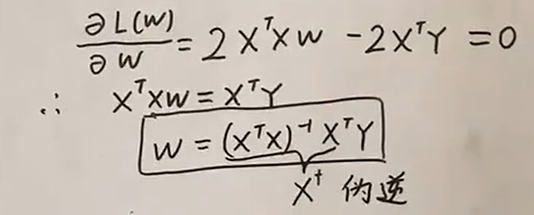 ∂L(W)/∂W = 2XᵀXW - 2XᵀY = 0
∴ XᵀXW = XᵀY
W = (XᵀX)⁻¹XᵀY
X† 伪逆